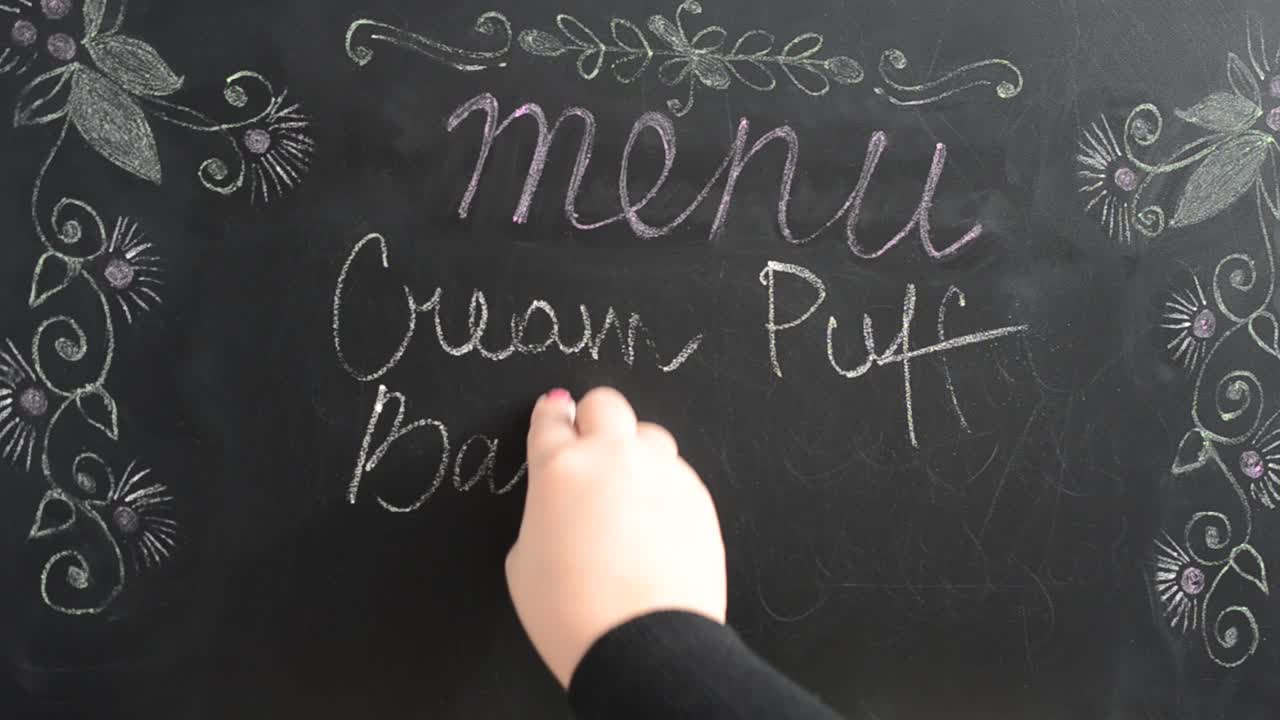 menu
Cream Puff
Ba